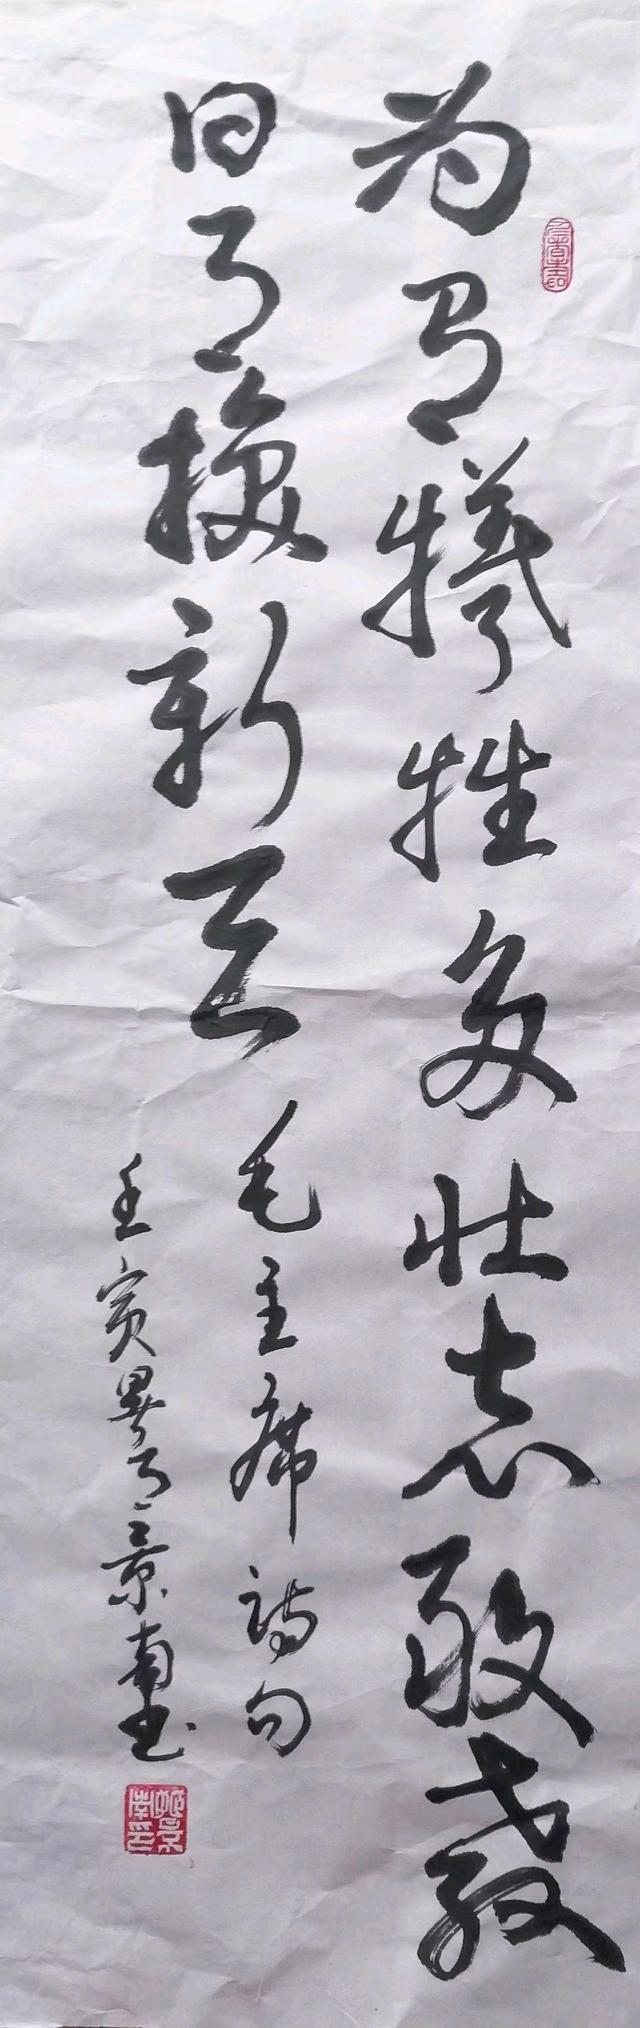 为有牺牲多壮志敢教
日月换新天
毛主席诗句
壬寅 月景南书